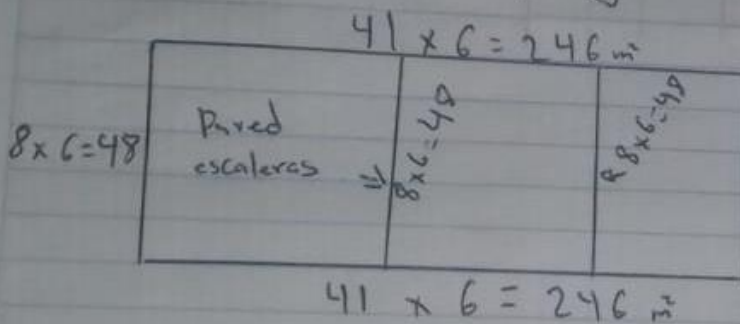 41 x 6 = 246 m²
8 x 6 = 48
Pared
escaleras ⇒
8 x 6 = 48
8 x 6 = 48
41 x 6 = 246 m²